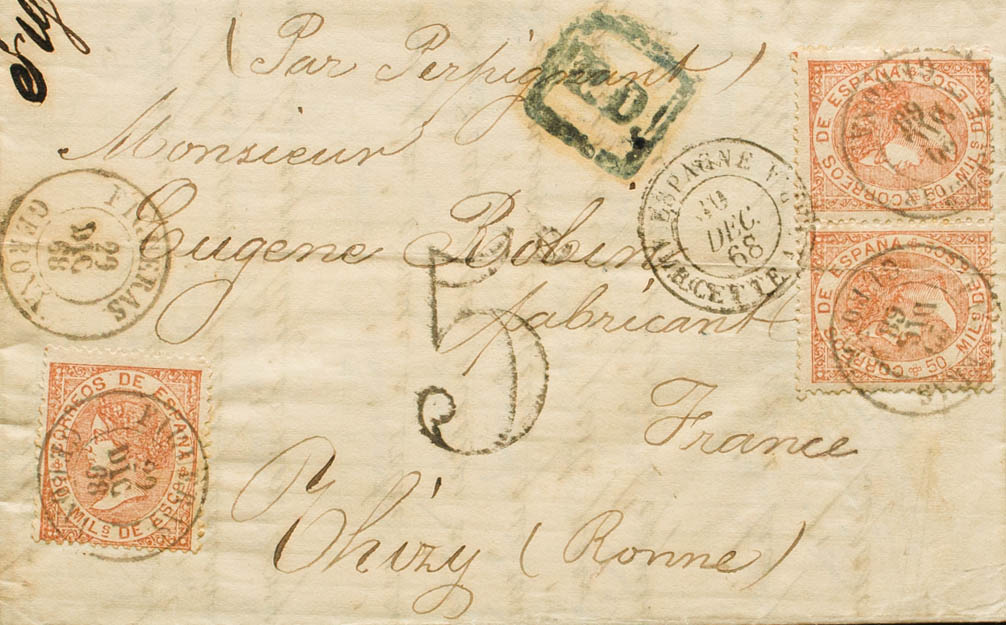 (Par Perpignant)
P.D.
Monsieur
Eugene Robin
fabricant
France
Thizy (Ronne)
5
FIGUERAS
29
DIC
68
GERONA
ESPAGNE
DEC
68
AMB CETTE A
CORREOS DE ESPAÑA
50 MILS DE ESCO
CORREOS DE ESPAÑA
50 MILS DE ESCO
CORREOS DE ESPAÑA
50 MILS DE ESCO
DIC
68